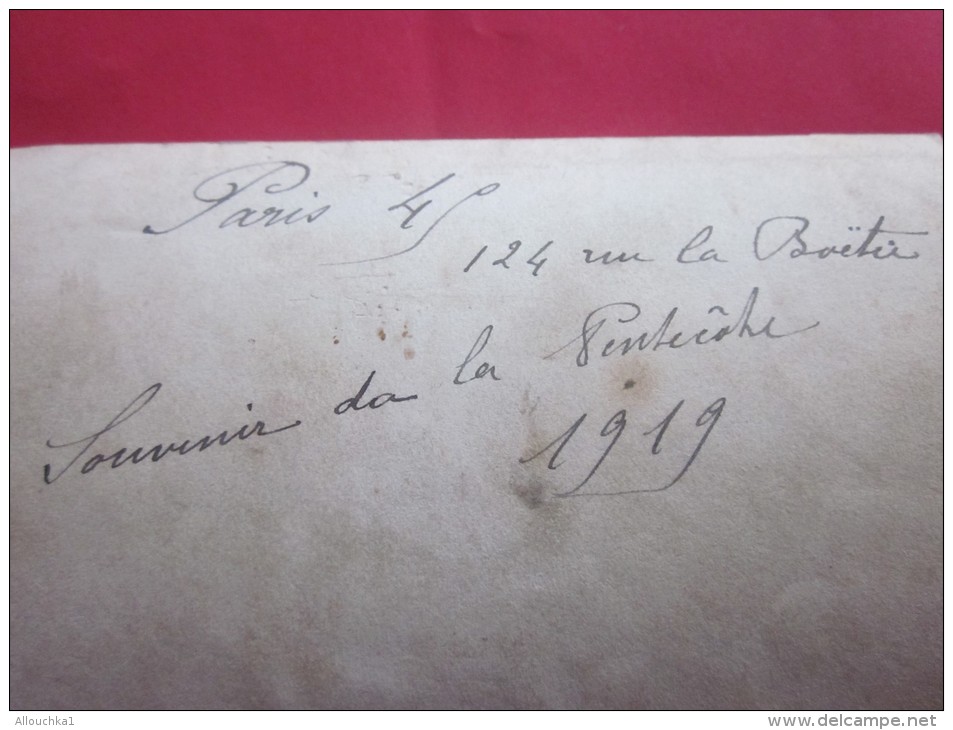 Paris 4
124 rue la Boëtie
Souvenir da la Pentecôte
1919
Allouchka1
www.delcampe.net